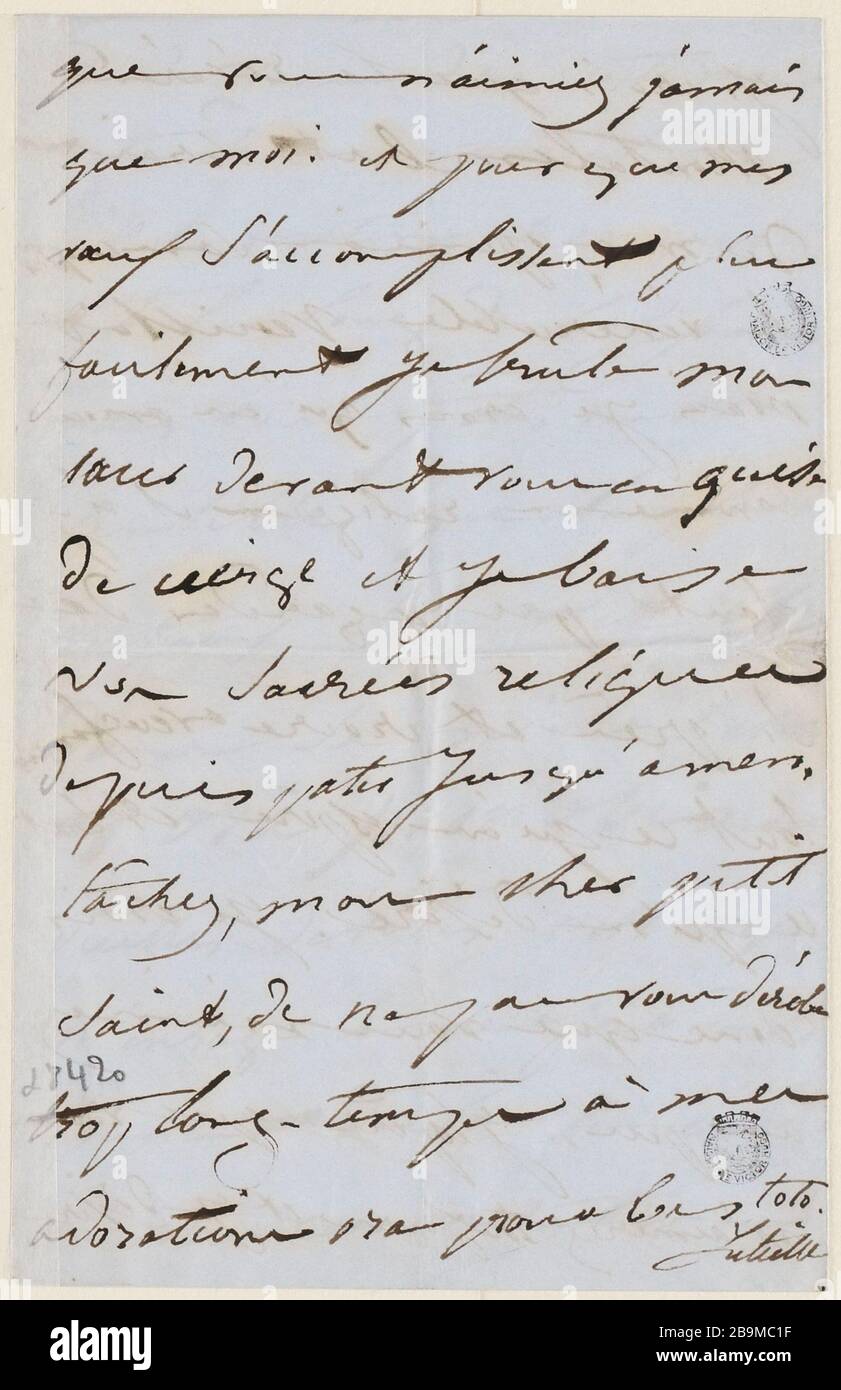 que vous n'aimiez jamais
que moi. et pour que mes
vœux s'accomplissent plus
facilement je brûle mon
cœur devant vous en guise
de cierge et je baise
vos sacrées reliques
depuis pater jusqu'à amen.
tâchez, mon cher petit
saint, de ne pas vous dérober
trop long-temps à mes
adorations ora pro nobis toto.
Juliette
23420
alamy
Image ID: 2B9MC1F
www.alamy.com